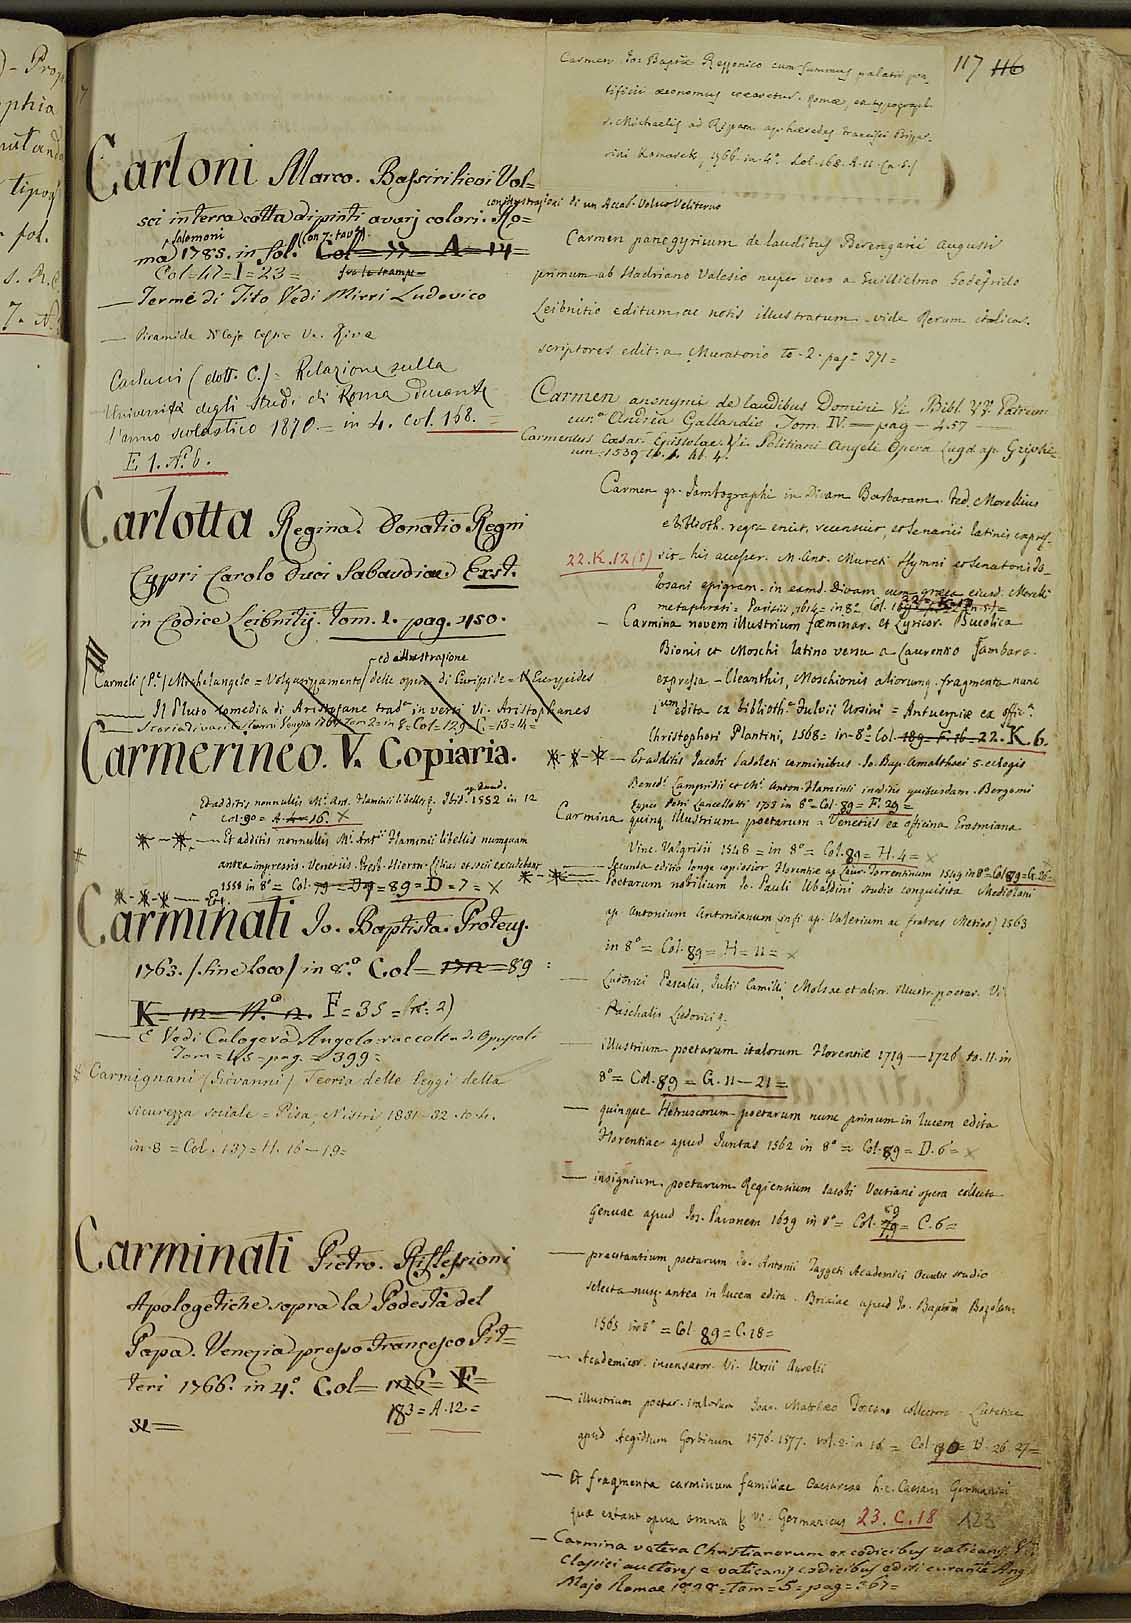 117 116
Carloni Marco. Bassirilievi Vol=
sci in terra cotta dipinti a varj colori. Ro=
con illustrazioni di un Accad. Volsco Veliterno
Salomoni (Con 7. tav.)
ma 1785. in fol. Col = 77 = A = 14 =
Col = 47 = I = 23 =
— Terme di Tito Vedi Mirri Ludovico
— Piramide di Cajo Cestio V. Riva
Carlucci (dott. C.) = Relazione sulla
Università degli Studi di Roma durante
l'anno scolastico 1870 = in 4. Col. 168. =
E 1. N. 6.
Carlotta Regina. Donatio Regni
Cypri Carolo Duci Sabaudiae. Ext.
in Codice Leibnitij. tom. 1. pag. 450.
ed illustrazione
Carmeli (P.) Michelangelo = Volgarizzamento delle opere di Euripide = V. Euripides
— Il Pluto comedia di Aristofane trad. in versi Vi. Aristophanes
Carmerineo. V. Copiaria.
Et additis nonnullis M. Ant. Flaminii libellis Ibid. 1552 in 12
Col. 90 = A. 16. X
— Et additis nonnullis M. Antii Flaminii libellis numquam
antea impressis. Venetiis Presb. Hieron. Lilius et socii excudebant
1558 in 8° = Col. = 89 = D = 7 = X
Carminati Io. Baptista. Proteus.
1763. / sine loco / in 8.° Col = 1712 = 89
K = 112 = N.° 12. F = 35 = (n. 2)
— E Vedi Calogerà Angelo raccolta di Opuscoli
Tom = 45 = pag. = 399 =
Carmignani (Giovanni) Teoria delle leggi della
sicurezza sociale = Pisa, Nistri, 1831-32. to. 4.
in-8 = Col. 137 = H. 16 — 19 =
Carminati Pietro. Riflessioni
Apologetiche sopra la Podestà del
Papa. Venezia presso Francesco Pit=
teri 1766. in 4.° Col = 1126 = F =
183 = A. 12 =
Carmen Io: Bapt. Rezzonico cum summus palatii pon
tificii œconomus crearetur. Romæ, ex typograph.
S. Michaelis ad Ripam ap. hæredes Francisci Bizzar
rini Komarek, 1766. in 4.° Col. 168. A. 11. (n. 5)
Carmen panegyricum de laudibus Berengarii Augusti
primum ab Hadriano Valesio nuper vero a Guillielmo Godefrido
Leibnitio editum, ac notis illustratum. vide Rerum italicar.
scriptores edit: a Muratorio to. 2. pag. 371 =
Carmen anonymi de laudibus Domini Vi. Bibl. VV. Patrum
cur. Andrea Gallandio Tom. IV. — pag — 457 —
Carmentus Cæsar. Epistolae. Vi. Politiani Angeli Opera Lugd. ap. Griphi=
um. 1539 lib. 4.
Carmen gr. Iambographi in Divam Barbaram. Fed. Morellius
e biblioth. regia eruit, recensuit, et senariis latinis expres
22. K. 12 (5) sit — his accesser. M. Ant. Mureti Hymni et Senatoris To
losani epigram. in eamd. Divam, cum græca ejusd. Morelli
metaphrasi = Parisiis, 1614 = in 8.
— Carmina novem illustrium fæminar. et Lyricor. Bucolica
Bionis et Moschi latino versu a Laurentio Gambara
expressa — Cleanthis, Moschionis aliorumq. fragmenta nunc
1um edita ex biblioth. Fulvii Ursini = Antuerpiæ ex offic.
Christophori Plantini, 1568 = in-8° Col. 189. F. 16 = 22. K. 6.
— Et additis Iacobi Sadoleti carminibus. Io. Bap. Amalthaei 5. eclogis
Bened. Lampridii et M. Anton. Flaminii ineditis quibusdam. Bergomi
typis Petri Lancellotti 1753 in 8° = Col. 89 = F. 29 =
Carmina quinq. illustrium poetarum = Venetiis ex officina Erasmiana
Vinc. Valgrisii 1548 = in 8° = Col. 89 = H. 4 = X
— Secunda editio longe copiosior Florentiæ ap. Laur. Torrentinum 1549 in 8° = Col. 89 = G. 26 =
Poetarum nobilium Io. Pauli Ubaldini studio conquisita Mediolani
ap. Antonium Antonianum (in fi. ap. Valerium ac fratres Metios) 1563
in 8° = Col. 89 = H = 11 = X
— Ludovici Pascalis, Iulii Camilli, Molsae et alior. illustr. poetar. Vi
Paschalis Ludovici
— illustrium poetarum italorum Florentiæ 1719 — 1726 to. 11. in
8° = Col. 89 = G. 11 — 21 =
— quinque Hetruscorum poetarum nunc primum in lucem edita
Florentiae apud Iuntas 1562 in 8° = Col. 89 = D. 6 = X
— insignium poetarum Regiensium Iacobi Voctiani opera collecta
Genuae apud Ios. Pavonem 1639 in 8° = Col. 89 = C. 6 =
— praestantium poetarum Io. Antonii Taygeti Academici Occulti studio
selecta nusq. antea in lucem edita. Brixiae apud Io. Baptam Bozolam
1565 in 8° = Col. 89 = C. 18 =
— Academicor. incensator. Vi. Ursii Aurelii
— illustrium poetar. italorum Ioan. Matthæo Toscano collectore. Lutetiæ
apud Aegidium Gorbinum 1576. 1577. vol. 2. in 16 = Col. 90 = B. 26. 27 =
— Et fragmenta carminum familiae Caesareae h. e. Caesaris Germanici
quæ extant opera omnia Vi. Germanicus 23. C. 18 123
— Carmina vetera Christianorum ex codicibus vaticanis
Classici auctores e vaticanis codicibus editi curante Ang.
Majo Romae 1828 = Tom = 5 = pag = 367 =